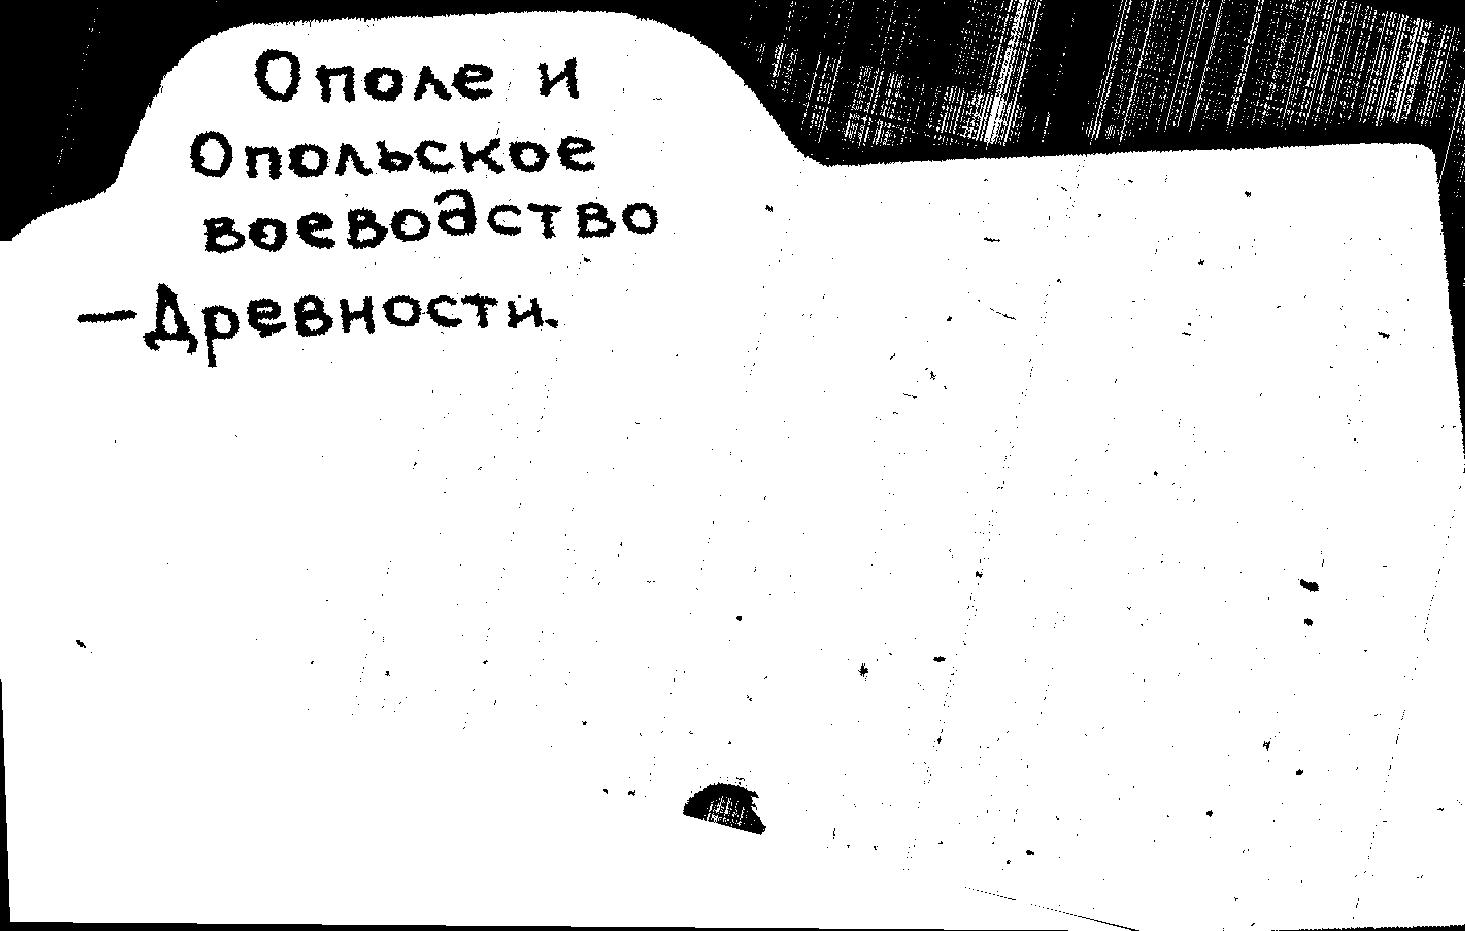 Ополе и
Опольское
воеводство
— Древности.